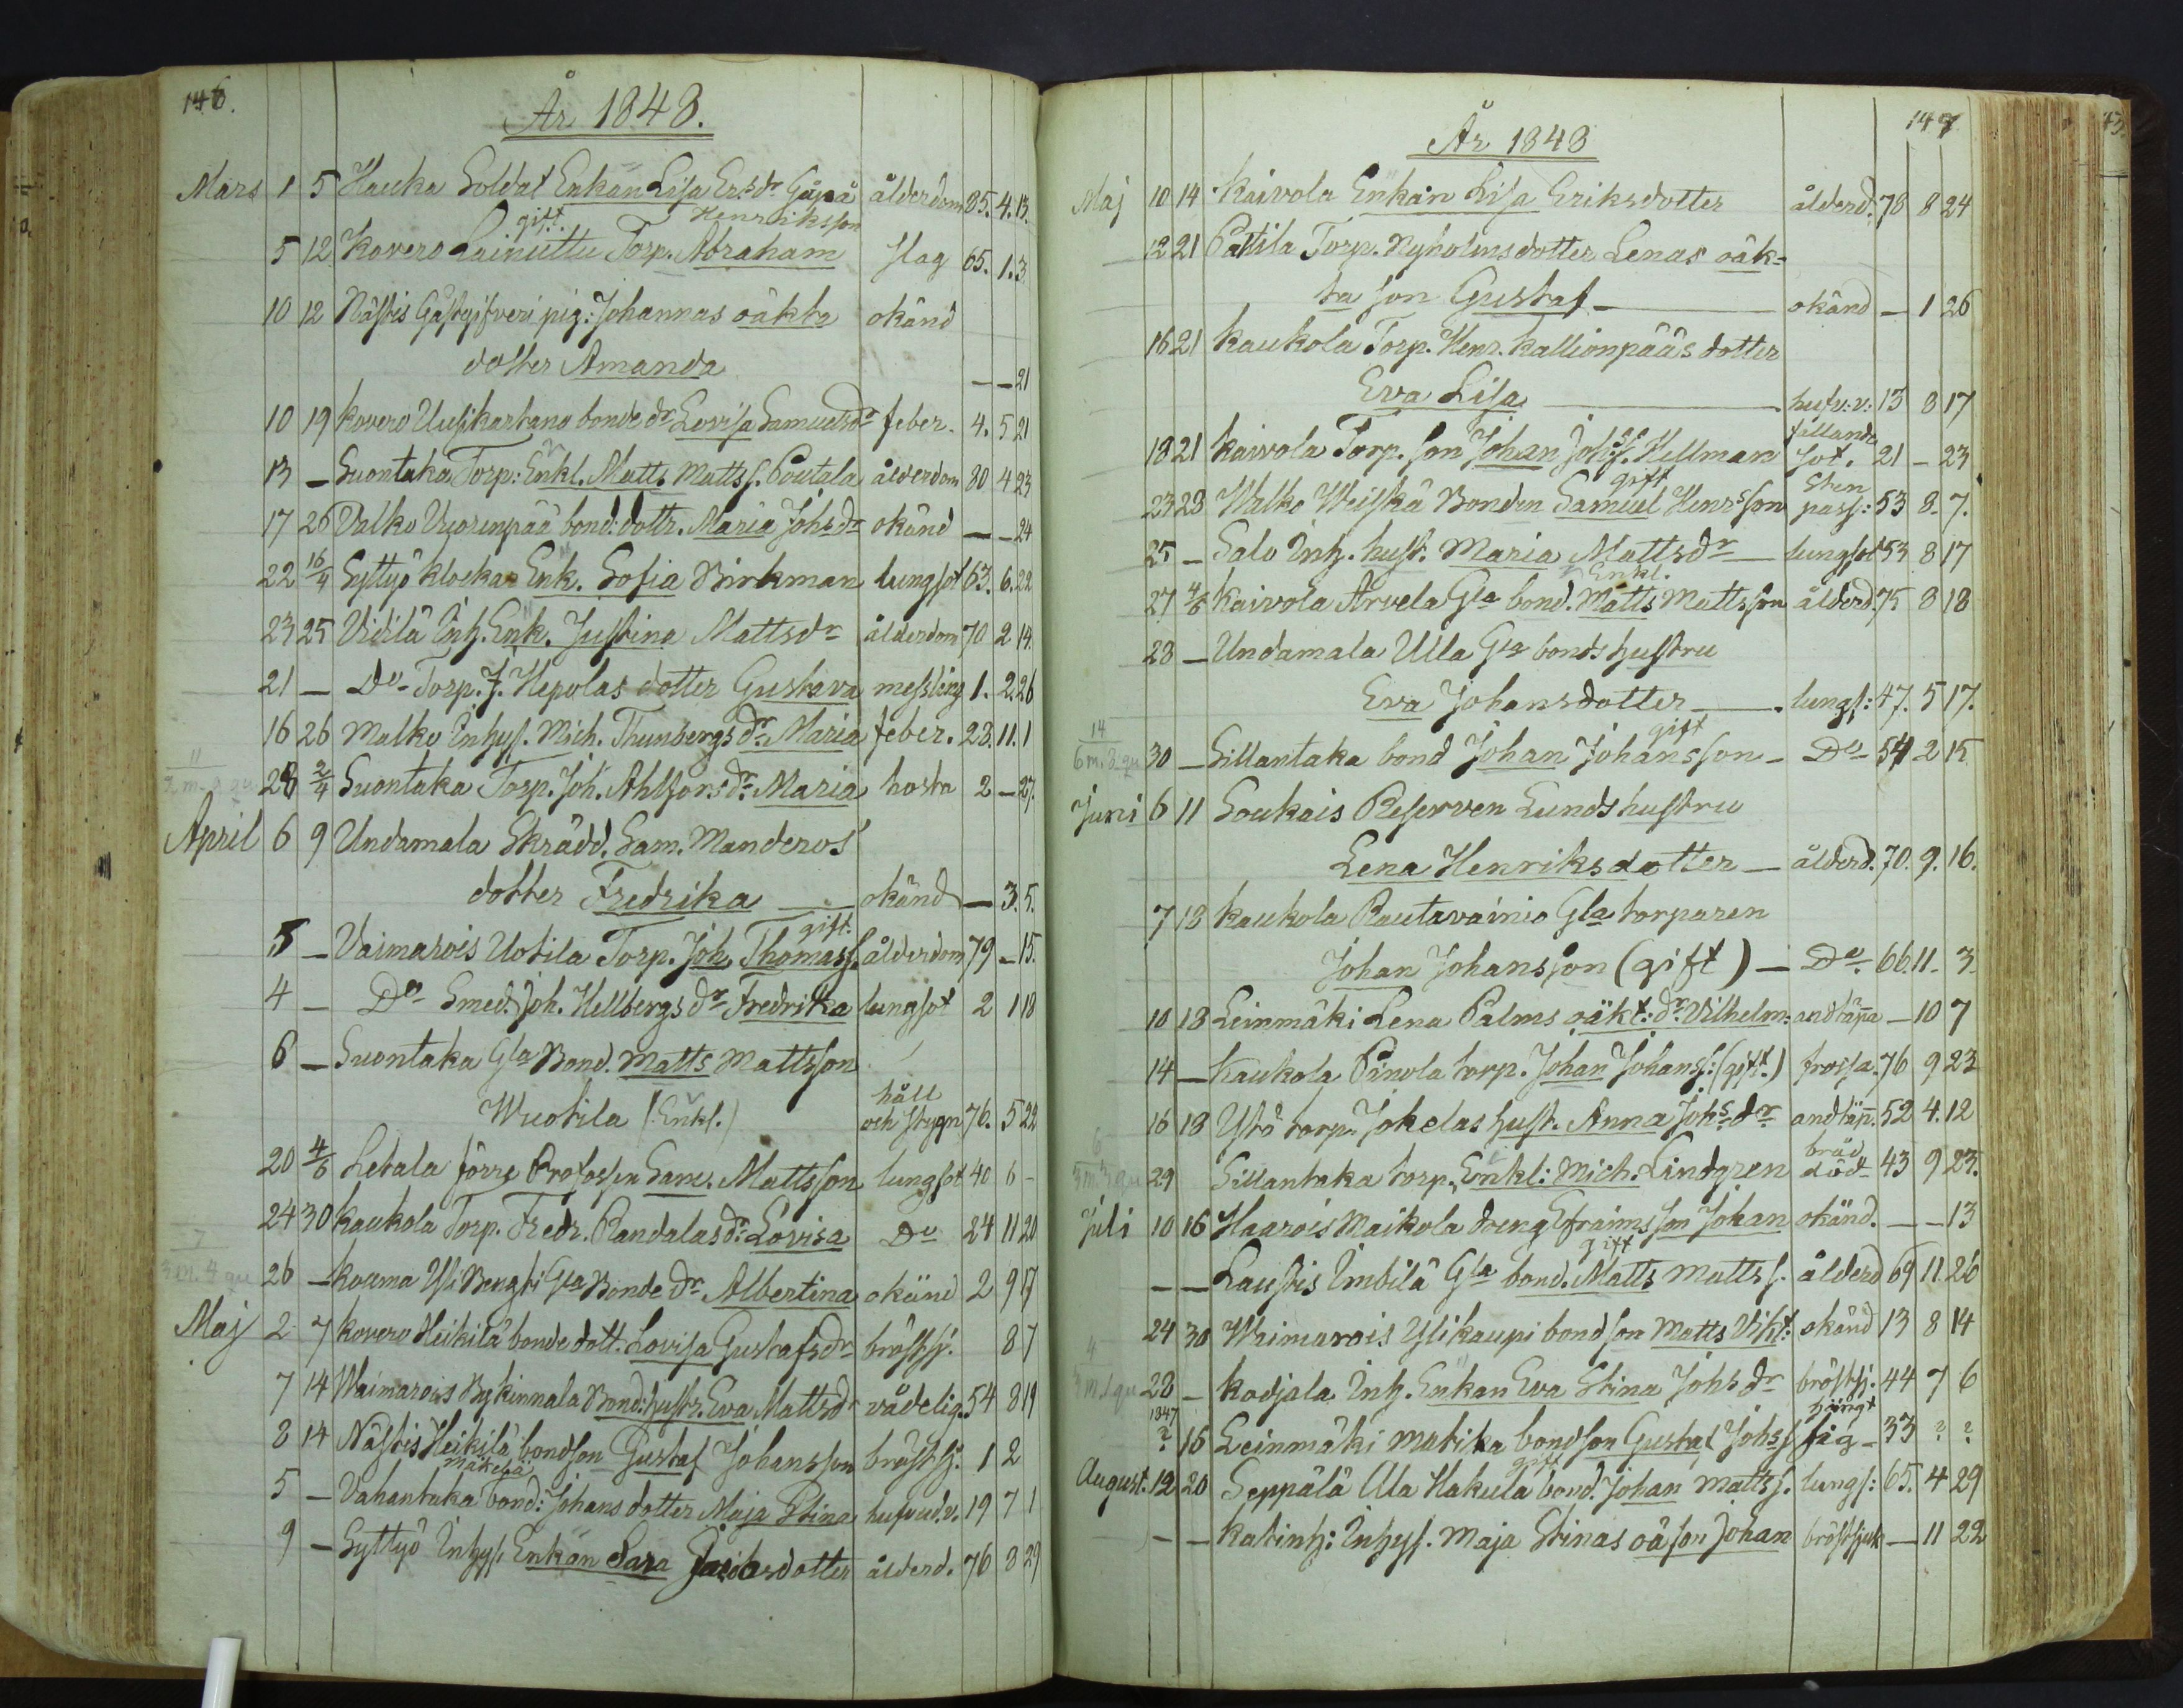 146.
År 1848.
Mars 1 5 Hauka Soldat Enkan Lisa Ersdr Gåpå ålderdom 85. 4. 13.
gift. Henriksson
5 12 Kovero Lainuttu Torp. Abraham slag 65. 1. 3
10 12 Nästis Gästgifveri pig: Johannas oäkta okänd
dotter Amanda — — 21
10 19 Kovero Uusikartano bonde dr Lovisa Samuelsdr feber. 4. 5 21
13 — Suontaka Torp: Enkl. Matts Mattss. Poutala ålderdom 80 4 23
17 26 Valko Vuorenpää bond. dottr. Maria Johsdr okänd — — 24
22 16/4 Syttyö klockar Enk. Sofia Birkman lungsot 63. 6. 22
23 25 Vidilä Inh. Enk. Justina Mattsdr ålderdom 70 2 14.
21 — Do Torp. J. Hepolas dotter Gustava messling 1. 2. 26
16 26 Malko Inhys. Mich. Thunbergs dr Maria feber. 23. 11. 1
11
3 m. 8 qu 28 2/4 Suontaka Torp. Joh. Ahlfors dr Maria hosta 2 — 27.
April 6 9 Undamala Skrädd. Sam. Manderos
dotter Fredrika — okänd — 3. 5.
gift.
5 — Vaimarois Uotila Torp. Joh. Thomass. ålderdom 79 — 15.
4 — Do Smed. Joh. Hellbergs dr Fredrika lungsot 2 1 18
6 — Suontaka Gla Bond. Matts Mattsson
Wuotila (Enkl.) håll och stygn 76. 5 22
20 4/6 Letala förre Profossen Sam. Mattsson lungsot 40 6 -
24 30 Kaukola Torp. Fredr. Randalas dr: Lovisa Do 24 11 20
7
3 m. 4 qu 26 — Kouma Yli Bengti Gla Bonde dr Albertina okänd 2 9 17
Maj 2 7 Kovero Heikilä bonde dott. Lovisa Gustafsdr bröstsj. 8 7
7 14 Waimarois Bykinnala Bond: hustr. Eva Mattsdr vådelig. 54 8 19
8 14 Nästis Heikilä bondson Gustaf Johansson bröstsj: 1 2
mäkelä
5 — Vahantaka bond: Johans dotter Maja Stina hufvud.v. 19 7 1
9 — Syttyö Inhys. Enkan Sara Jacobsdotter ålderd. 76 8 29
147
År 1848
Maj 10 14 Kaivola Enkan Lisa Eriksdotter ålderd. 78 8 24
12 21 Pattila Torp. Nyholmsdotter Lenas oäk-
ta son Gustaf — okänd — 1 26
16 21 Kaukola Torp. Henr. Kallionpääs dotter
Eva Lisa — hufv.v: 13 8 17
18 21 Kaivola Torp. son Johan Johss. Hellman fallande sot. 21 — 23
gift
23 28 Walko Weiskä Bonden Samuel Henrsson Sten pass: 53 8. 7.
25 — Salo Inh. hust. Maria Mattsdr — lungsot 53 8 17
Enkl.
27 4/6 Kaivola Arvela Gla bond. Matts Mattsson ålderd. 75 8 18
28 — Undamala Ulla Gla bonds hustru
Eva Johansdotter — lungs: 47. 5 17.
14 gift
6 m. 8 qu 30 — Sillantaka bond Johan Johansson — Do 54 2 15
Juni 6 11 Soukais Reserven Lunds hustru
Lena Henriksdotter — ålderd. 70. 9. 16.
7 18 Kaukola Rautavainio Gla torparen
Johan Johansson (gift) — Do. 66. 11. 3.
10 18 Leinmäki Lena Palms oäkt: dr: Vilhelm: andtäppa — 10 7
14 — Kaukola Pinola torp. Johan Johanss: (gift.) frossa. 76 9 23
16 18 Ystö torp. Jokelas hust. Anna Johsdr andtäp. 52 4. 12
6
3 m. 3 qu 29 Sillantaka torp. Enkl: Mich. Lindgren bråd död 43 9 23.
Juli 10 16 Haarois Maikola dreng Efraims son Johan okänd. — — 13
gift
— — Laustis Imbilä Gla bond. Matts Mattss. ålderd 69 11. 26
24 30 Waimarois Ylikaupi bondson Matts Vikt: okänd 13 8 14
4
3 m. 1 qu 28 — Kodjala Inh. Enkan Eva Stina Johsdr bröstsj: 44 7 6
1847
? 16 Leinmäki Matika bondson Gustaf Johss hängt sig — 33 ? ?
gift
August. 12 20 Seppälä Ala Hakula bond. Johan Mattss. lungs: 65. 4 29
— — Katinh: Inhys. Maja Stinas oä son Johan bröstsjuk — 11 22